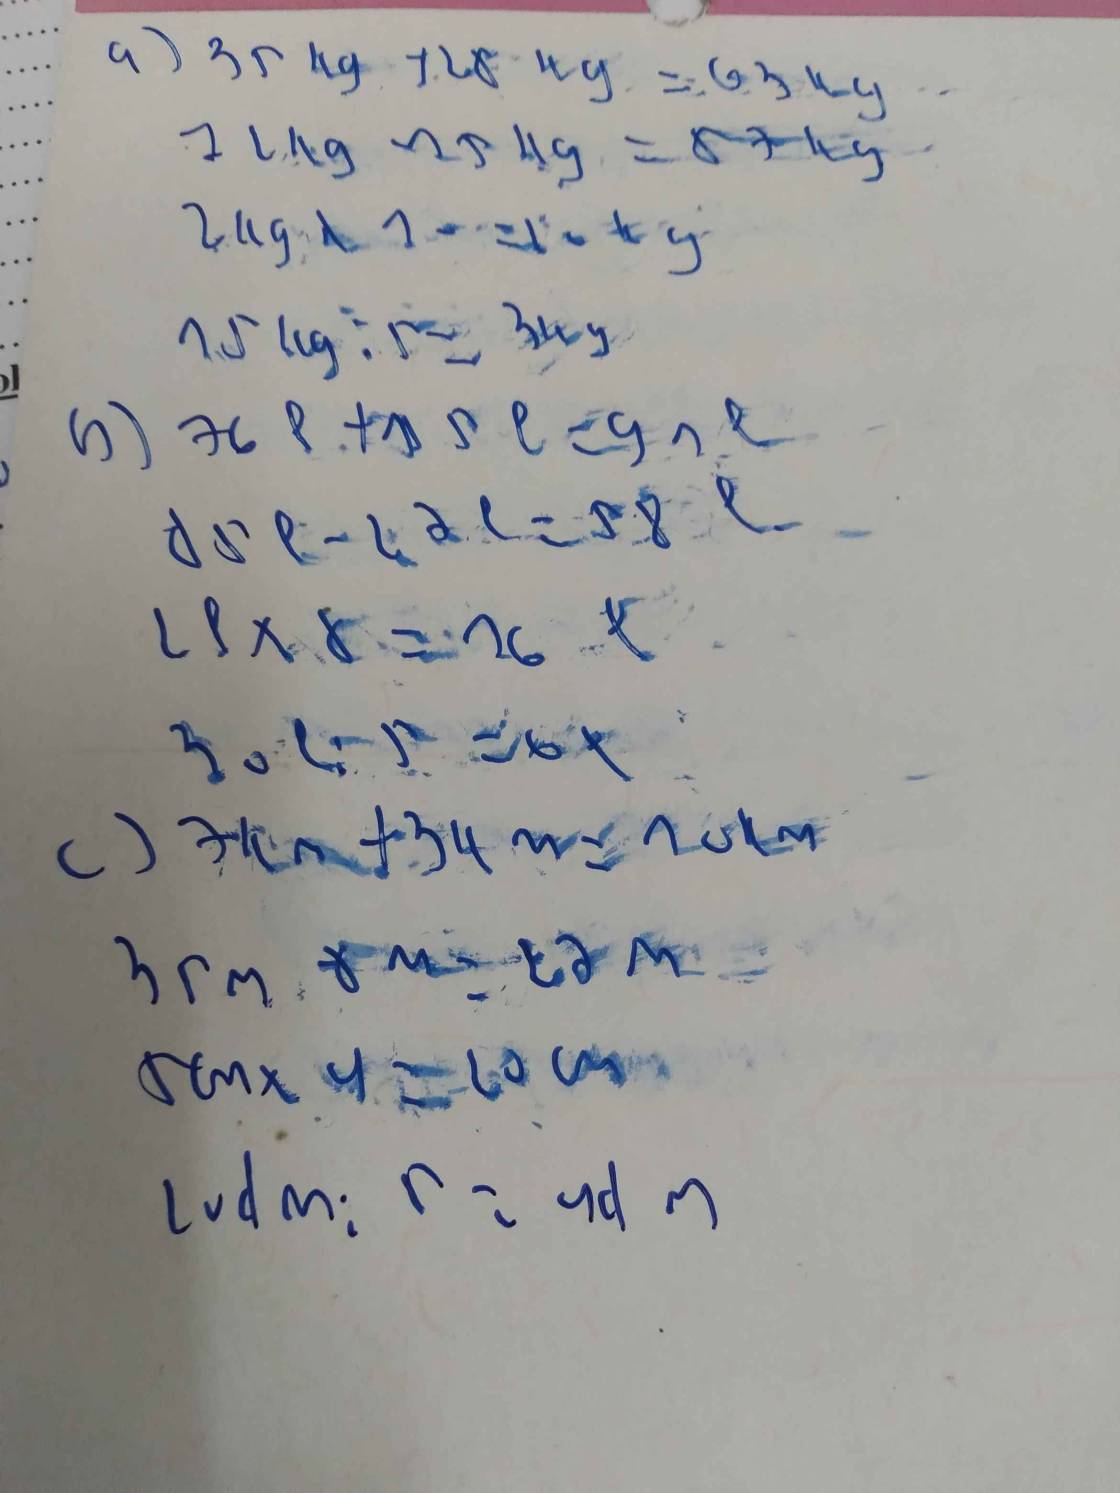 a) 35 kg + 28 kg = 63 kg
72 kg - 15 kg = 57 kg
2 kg x 10 = 20 kg
15 kg : 5 = 3 kg
b) 76 l + 15 l = 91 l
85 l - 27 l = 58 l
2 l x 8 = 16 l
30 l : 5 = 6 l
c) 7 km + 3 km = 10 km
35 m 8 m = 27 m
5 cm x 4 = 20 cm
20 dm : 5 = 4 dm